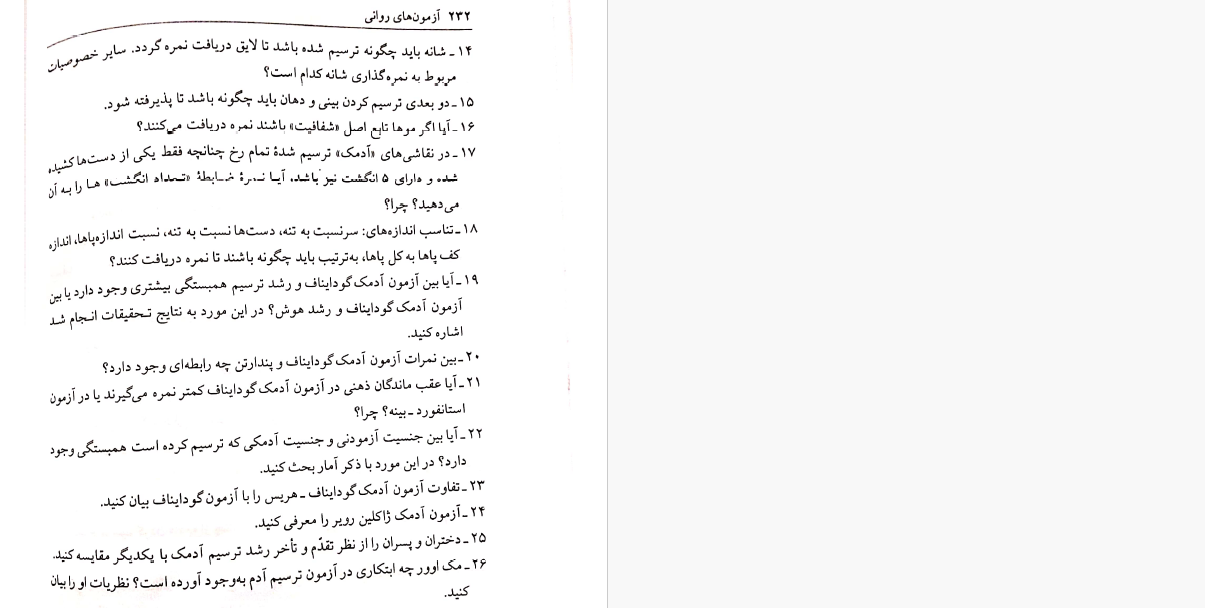 ۲۳۲ آزمون‌های روانی
۱۴ـ شانه باید چگونه ترسیم شده باشد تا لایق دریافت نمره گردد. سایر خصوصیات
مربوط به نمره‌گذاری شانه کدام است؟
۱۵ـ دو بعدی ترسیم کردن بینی و دهان باید چگونه باشد تا پذیرفته شود.
۱۶ـ آیا اگر موها تابع اصل «شفافیت» باشند نمره دریافت می‌کنند؟
۱۷ـ در نقاشی‌های «آدمک» ترسیم شدۀ تمام رخ چنانچه فقط یکی از دست‌ها کشیده
شده و دارای ۵ انگشت نیز باشد، آیا نمرۀ ضابطۀ «تعداد انگشت» ها را به آن
می‌دهید؟ چرا؟
۱۸ـ تناسب اندازه‌های: سرنسبت به تنه، دست‌ها نسبت به تنه، نسبت اندازه‌پاها، اندازه
کف پاها به کل پاها، به‌ترتیب باید چگونه باشند تا نمره دریافت کنند؟
۱۹ـ آیا بین آزمون آدمک گودایناف و رشد ترسیم همبستگی بیشتری وجود دارد یا بین
آزمون آدمک گودایناف و رشد هوش؟ در این مورد به نتایج تحقیقات انجام شد
اشاره کنید.
۲۰ـ بین نمرات آزمون آدمک گودایناف و پندارتن چه رابطه‌ای وجود دارد؟
۲۱ـ آیا عقب ماندگان ذهنی در آزمون آدمک گودایناف کمتر نمره می‌گیرند یا در آزمون
استانفورد ـ بینه؟ چرا؟
۲۲ـ آیا بین جنسیت آزمودنی و جنسیت آدمکی که ترسیم کرده است همبستگی وجود
دارد؟ در این مورد با ذکر آمار بحث کنید.
۲۳ـ تفاوت آزمون آدمک گودایناف ـ هریس را با آزمون گودایناف بیان کنید.
۲۴ـ آزمون آدمک ژاکلین رویر را معرفی کنید.
۲۵ـ دختران و پسران را از نظر تقدّم و تأخر رشد ترسیم آدمک با یکدیگر مقایسه کنید.
۲۶ـ مک اوور چه ابتکاری در آزمون ترسیم آدم به‌وجود آورده است؟ نظریات او را بیان
کنید.